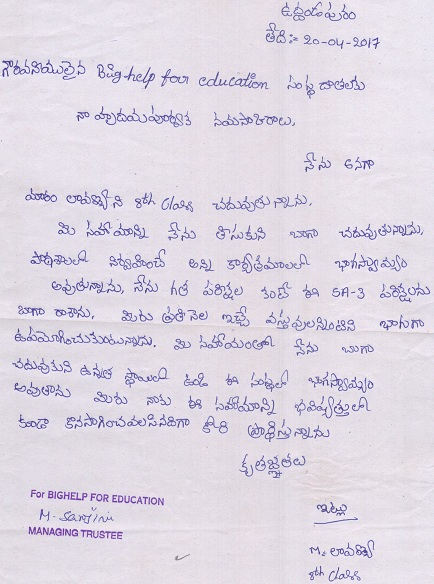 ఉద్దండపురం
తేది:- 20-04-2017
గౌరవనీయులైన Big-help for education సంస్థ దాతలకు
నా హృదయపూర్వక నమస్కారాలు,
నేను అనగా
మారం లావణ్యని 8th Class చదువుతున్నాను.
మీ సహాయాన్ని నేను తీసుకుని బాగా చదువుతున్నాను,
పాఠశాలలో నిర్వహించే అన్ని కార్యక్రమాలలో భాగస్వామ్యం
అవుతున్నాను, నేను గత పరిక్షల కంటే ఈ SA-3 పరిక్షలను
బాగా రాశాను, మీరు ప్రతి నెల ఇచ్చే వస్తువులన్నింటిని బాగుగా
ఉపయోగించుకుంటున్నాను. మీ సహాయంతో నేను బాగా
చదువుకుని ఉన్నత స్థాయిలో ఉండి ఈ సంస్థలో భాగస్వామ్యం
అవుతాను మీరు నాకు ఈ సహాయాన్ని భవిష్యత్తులో
కూడా కొనసాగించవలసినదిగా కోరి ప్రార్థిస్తున్నాను
కృతజ్ఞతలు
For BIGHELP FOR EDUCATION
M. Sarojini
MANAGING TRUSTEE
ఇట్లు
M. లావణ్య
8th Class